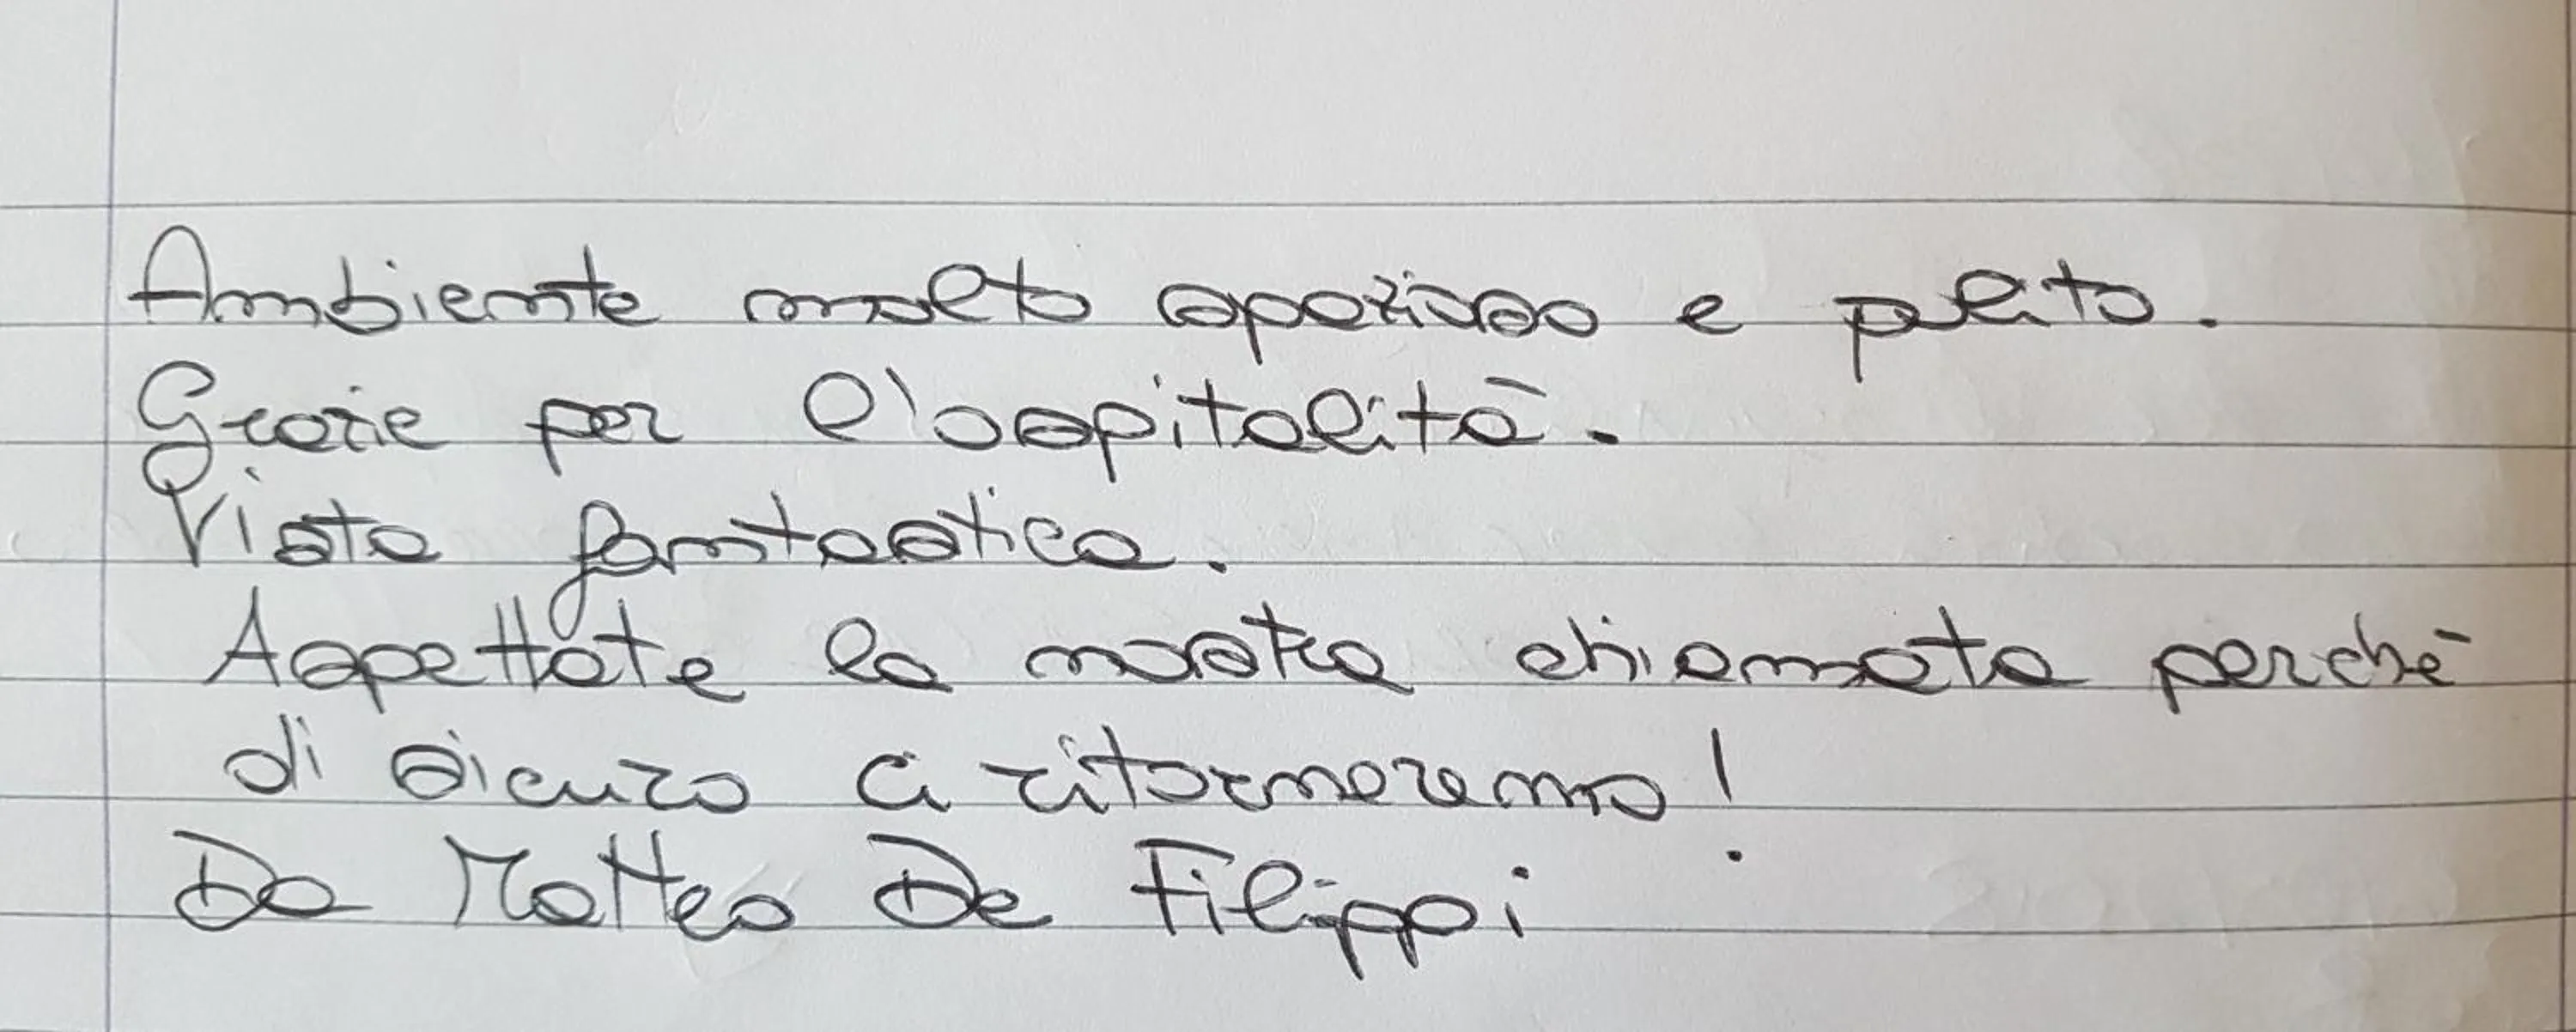 Ambiente molto spazioso e pulito.
Grazie per l'ospitalità.
Vista fantastica.
Aspettate la nostra chiamata perchè
di sicuro ci ritorneremo!
Da Matteo De Filippi